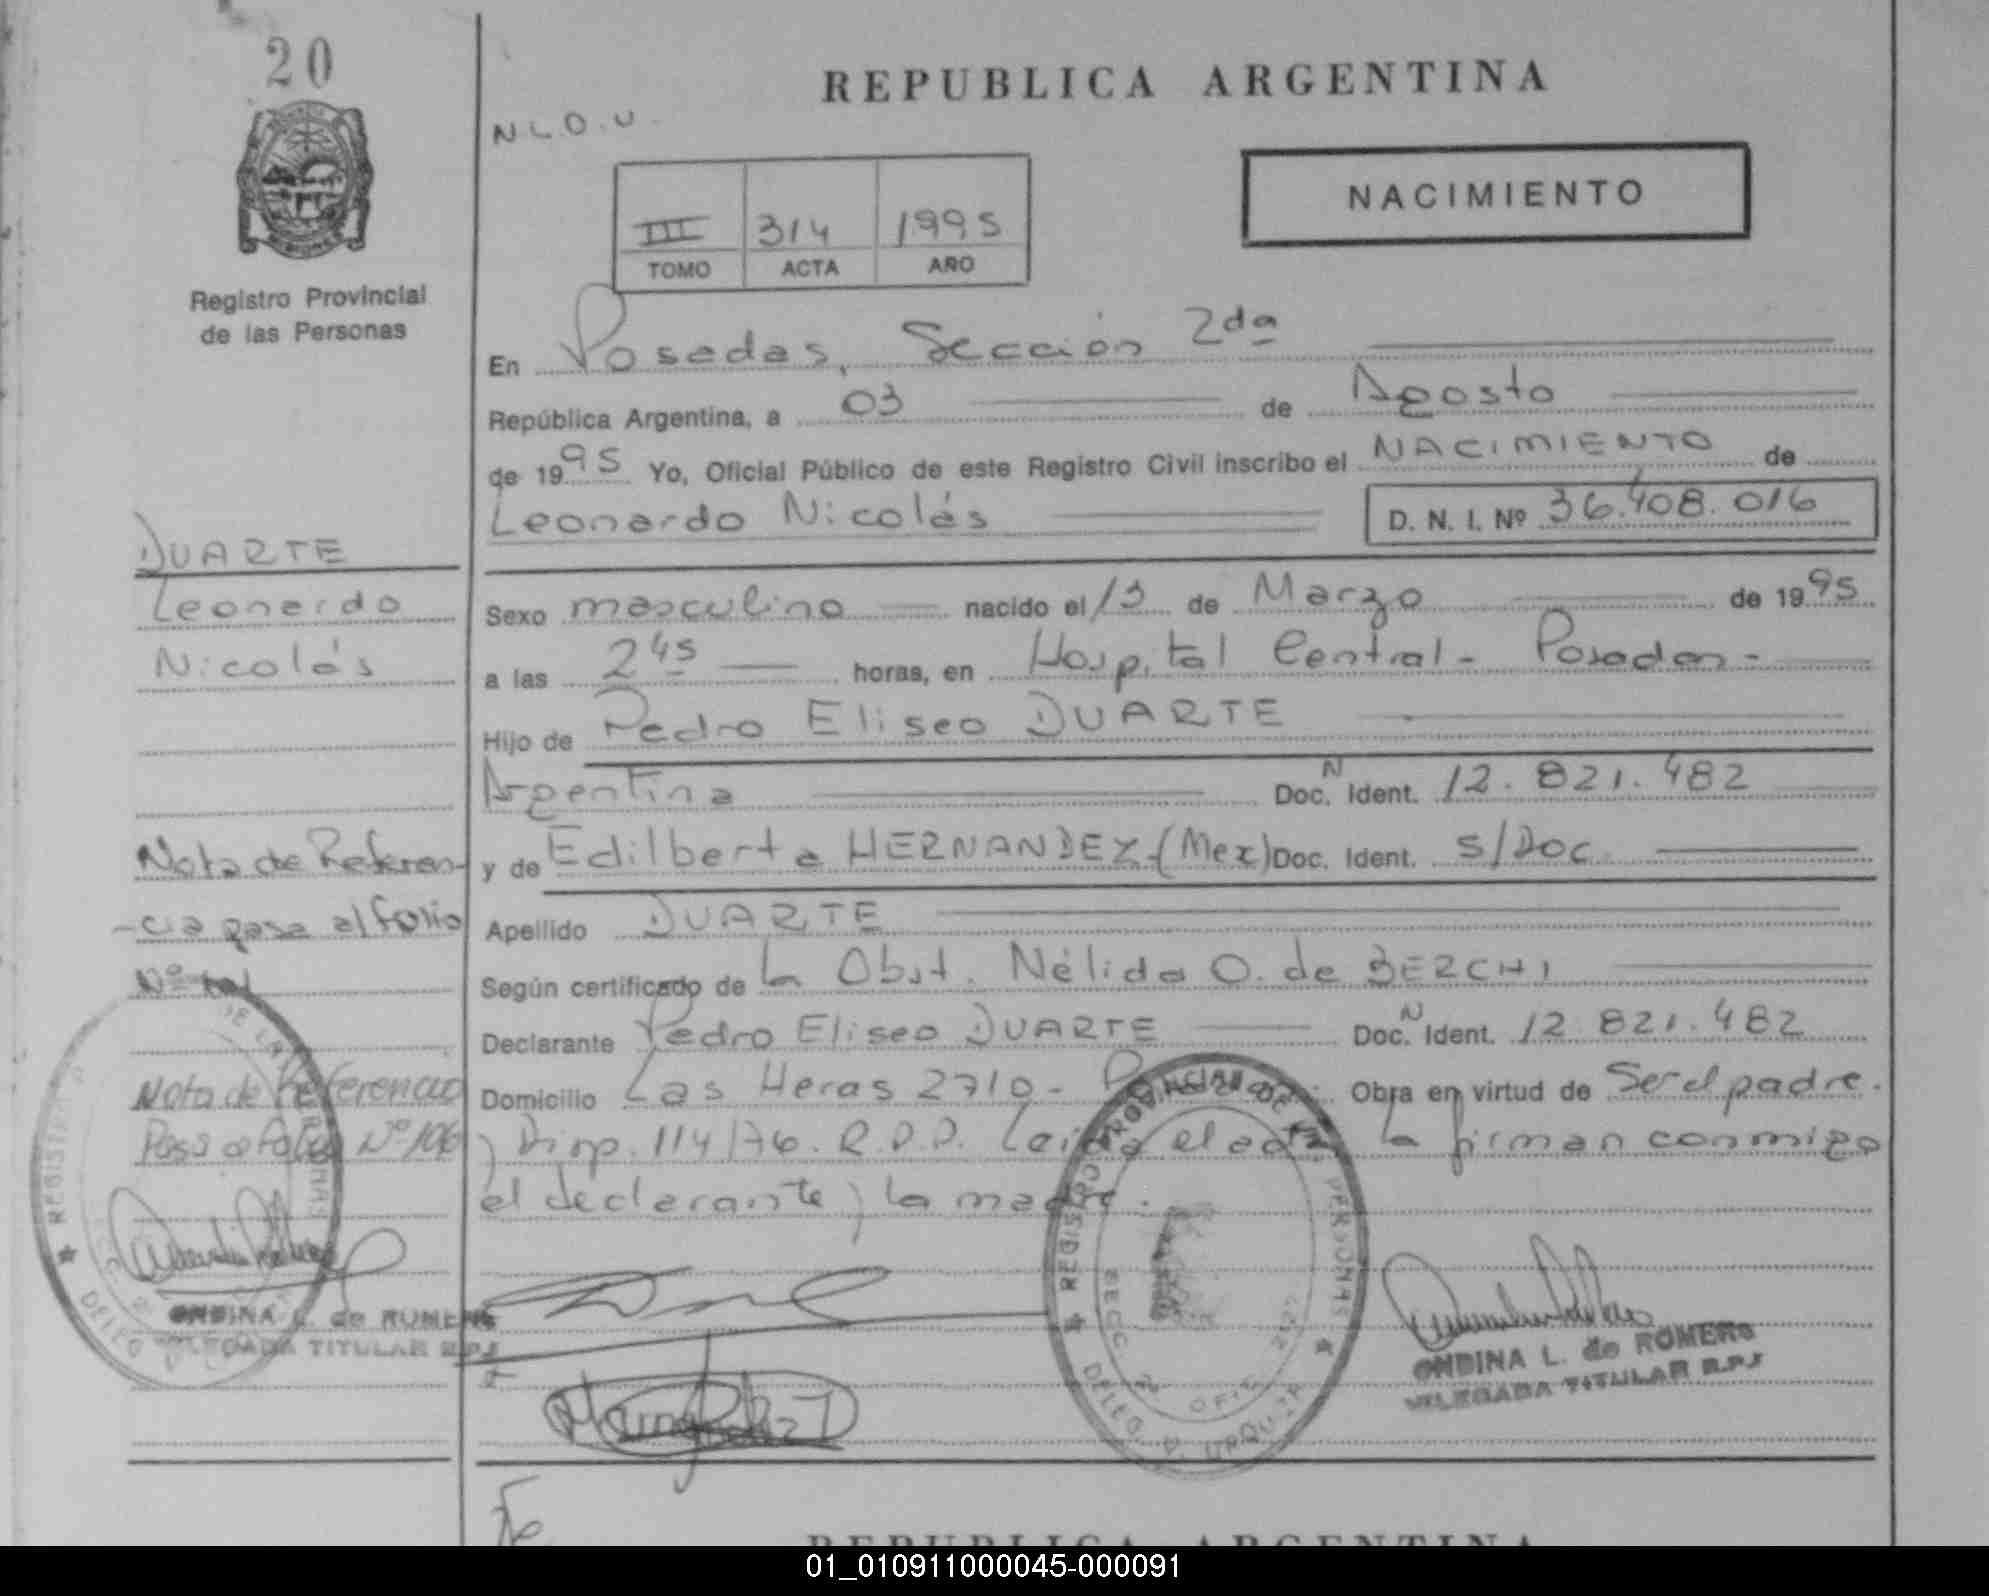 20
REPUBLICA ARGENTINA
N L.D.U.
III 314 1995
TOMO ACTA AÑO
NACIMIENTO
Registro Provincial
de las Personas
En Posadas, Sección 2da
República Argentina, a 03 de Agosto
de 1995 Yo, Oficial Público de este Registro Civil inscribo el NACIMIENTO de
Leonardo Nicolás D. N. I. Nº 36.408.016
DUARTE
Leonardo
Nicolás
Sexo masculino nacido el 13 de Marzo de 1995
a las 2 45 horas, en Hospital Central - Posadas -
Hijo de Pedro Eliseo DUARTE
Argentina Doc. N Ident. 12.821.482
y de Edilberta HERNANDEZ (Mex) Doc. Ident. S/Doc.
Apellido DUARTE
Según certificado de la Obst. Nélida O. de BERCHI
Declarante Pedro Eliseo DUARTE Doc. N Ident. 12.821.482
Domicilio Las Heras 2710 - Obra en virtud de Ser el padre.
y Disp. 114/76. R.P.P. Leida el acta la firman conmigo
el declarante y la madre.
Nota de Referen-
-cia pasa al folio
Nº
Nota de Referencia
Pasa a folio Nº 106
REGISTRO PROVINCIAL DE LAS PERSONAS
SECC 2ª OFIC 2127
DELEG. P. URQUIZA
ONDINA L. de ROMERO
DELEGADA TITULAR R.P.P
ONDINA L. de ROMERO
DELEGADA TITULAR R.P.P
REPUBLICA ARGENTINA
01_010911000045-000091